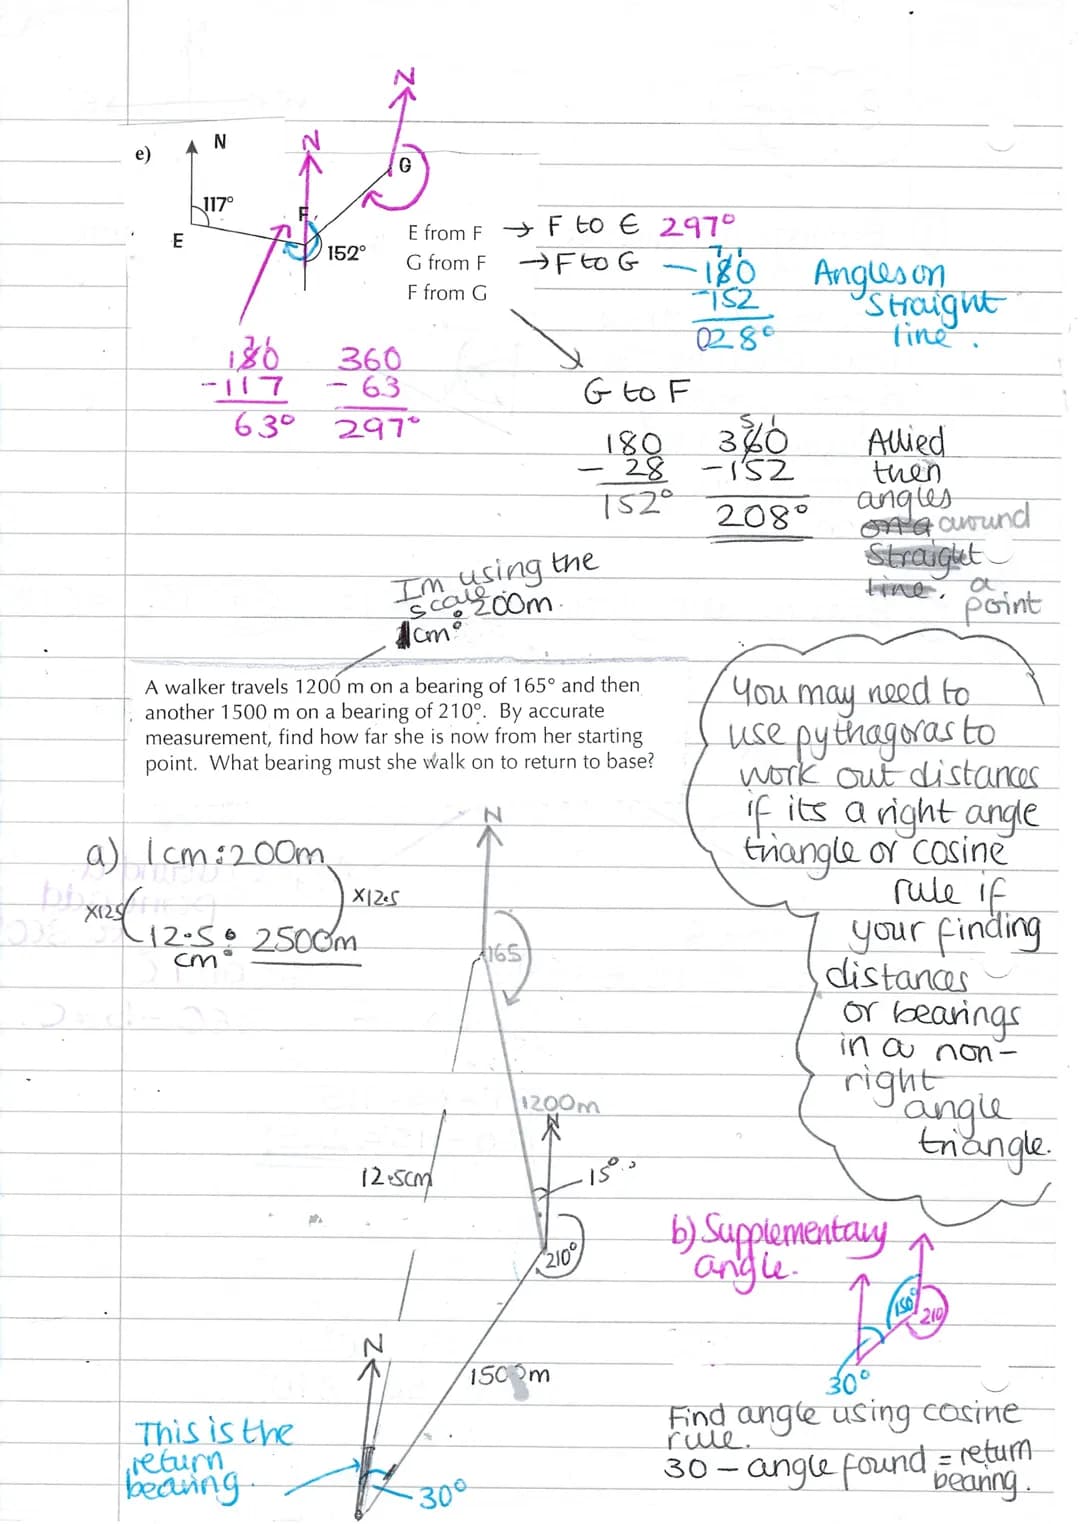 N
N
N
e)
G
117°
F
E
152°
E from F → F to E 297°
G from F → F to G
F from G
180
-152
028°
Angles on
straight
line.
180
-117
63°
360
- 63
297°
G to F
180
- 28
152°
360
-152
208°
Allied
then
angles
on a around
straight
line. a
point
Im using the
scale
1cm: 200m.
A walker travels 1200 m on a bearing of 165° and then
another 1500 m on a bearing of 210°. By accurate
measurement, find how far she is now from her starting
point. What bearing must she walk on to return to base?
You may need to
use pythagoras to
work out distances
if its a right angle
triangle or cosine
rule if
your finding
distances
or bearings
in a non-
right
angle
triangle.
a) 1cm:200m
x12.5
x125
12.5 : 2500m
cm
N
165
1200m
N
15°
12.5cm
210°
1500m
N
30°
This is the
return
bearing.
b) Supplementary
angle.
150°
210
30°
Find angle using cosine
rule.
30 - angle found = return
bearing.